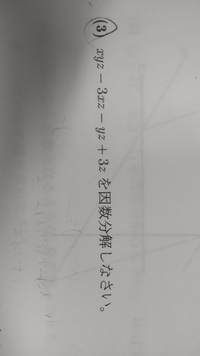 (3) xyz − 3xz − yz + 3z を因数分解しなさい。